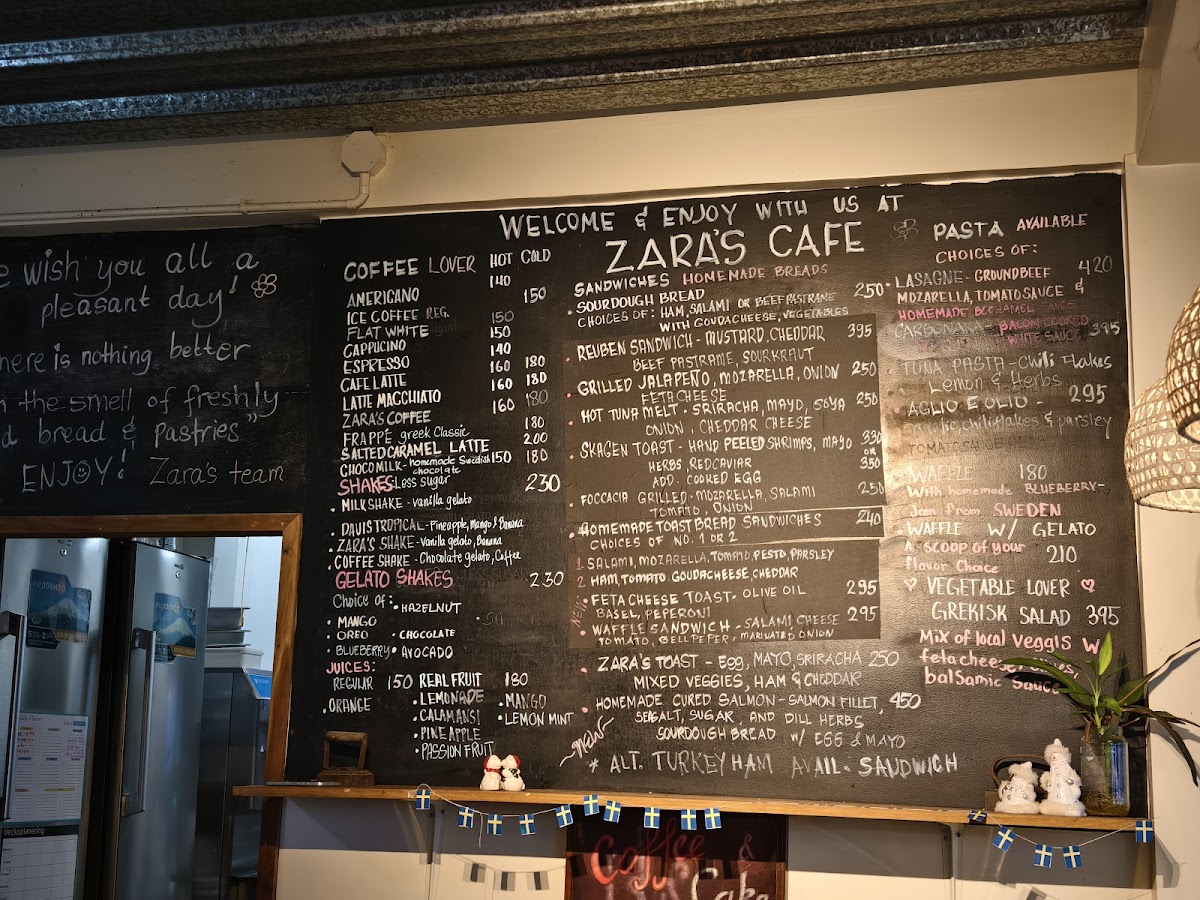 e wish you all a
pleasant day!
here is nothing better
the smell of freshly
d bread & pastries"
ENJOY! Zara's team
WELCOME & ENJOY WITH US AT
ZARA'S CAFE
COFFEE LOVER HOT COLD
140
AMERICANO 150
ICE COFFEE REG. 150
FLAT WHITE 150
CAPPUCINO 140
ESPRESSO 160 180
CAFE LATTE 160 180
LATTE MACCHIATO 160 180
ZARA'S COFFEE 180
FRAPPÉ greek Classic 200
SALTED CARAMEL LATTE
CHOCO MILK - homemade Swedish chocolate 150 180
SHAKES Less sugar 230
. MILKSHAKE - vanilla gelato
. DAVIS TROPICAL - Pineapple, Mango & Banana
. ZARA'S SHAKE - Vanilla gelato, Banana
. COFFEE SHAKE - Chocolate gelato, Coffee
GELATO SHAKES 230
Choice of: • HAZELNUT
• MANGO
• OREO • CHOCOLATE
• BLUEBERRY • AVOCADO
JUICES:
REGULAR 150 • REAL FRUIT 180
. ORANGE • LEMONADE • MANGO
• CALAMANSI • LEMON MINT
• PINEAPPLE
• PASSION FRUIT
SANDWICHES HOMEMADE BREADS
• SOURDOUGH BREAD 250
CHOICES OF: HAM, SALAMI OR BEEF PASTRAME
WITH GOUDACHEESE, VEGETABLES
• REUBEN SANDWICH - MUSTARD, CHEDDAR 395
BEEF PASTRAME, SOURKRAUT
• GRILLED JALAPEÑO, MOZARELLA, ONION 250
FETA CHEESE
• HOT TUNA MELT - SRIRACHA, MAYO, SOYA 250
ONION, CHEDDAR CHEESE
• SKAGEN TOAST - HAND PEELED SHRIMPS, MAYO 330
OR
HERBS, RED CAVIAR 350
ADD. COOKED EGG
• FOCCACIA GRILLED - MOZARELLA, SALAMI 250
TOMATO, ONION
• HOMEMADE TOAST BREAD SANDWICHES 240
CHOICES OF NO. 1 OR 2
1. SALAMI, MOZARELLA, TOMATO, PESTO, PARSLEY
2. HAM, TOMATO. GOUDACHEESE, CHEDDAR
NEW
• FETA CHEESE TOAST - OLIVE OIL 295
BASEL, PEPERONI
• WAFFLE SANDWICH - SALAMI CHEESE 295
TOMATO, BELL PEPER, MARINATED ONION
• ZARA'S TOAST - EGG, MAYO, SRIRACHA 250
MIXED VEGGIES, HAM & CHEDDAR
• HOMEMADE CURED SALMON - SALMON FILLET, 450
SEASALT, SUGAR, AND DILL HERBS
SOURDOUGH BREAD W/ EGG & MAYO
new
* ALT. TURKEY HAM AVAIL. SANDWICH
PASTA AVAILABLE
CHOICES OF:
LASAGNE - GROUNDBEEF 420
MOZARELLA, TOMATO SAUCE &
HOMEMADE BECHAMEL SAUCE
CARBONARA - BACON COOKED 395
WHITE SAUCE
TUNA PASTA - Chili flakes
Lemon & Herbs
295
AGLIO E OLIO -
chiliflakes & parsley
WAFFLE 180
With homemade BLUEBERRY-
Jam from SWEDEN
• WAFFLE W/ GELATO
A scoop of your 210
flavor Choice
♡ VEGETABLE LOVER ♡
GREKISK SALAD 395
Mix of local Veggis W
feta cheese
balsamic Sauce
FUJIDENZO
FUJIDENZO
Veckoplanering
Coffee &
Cake